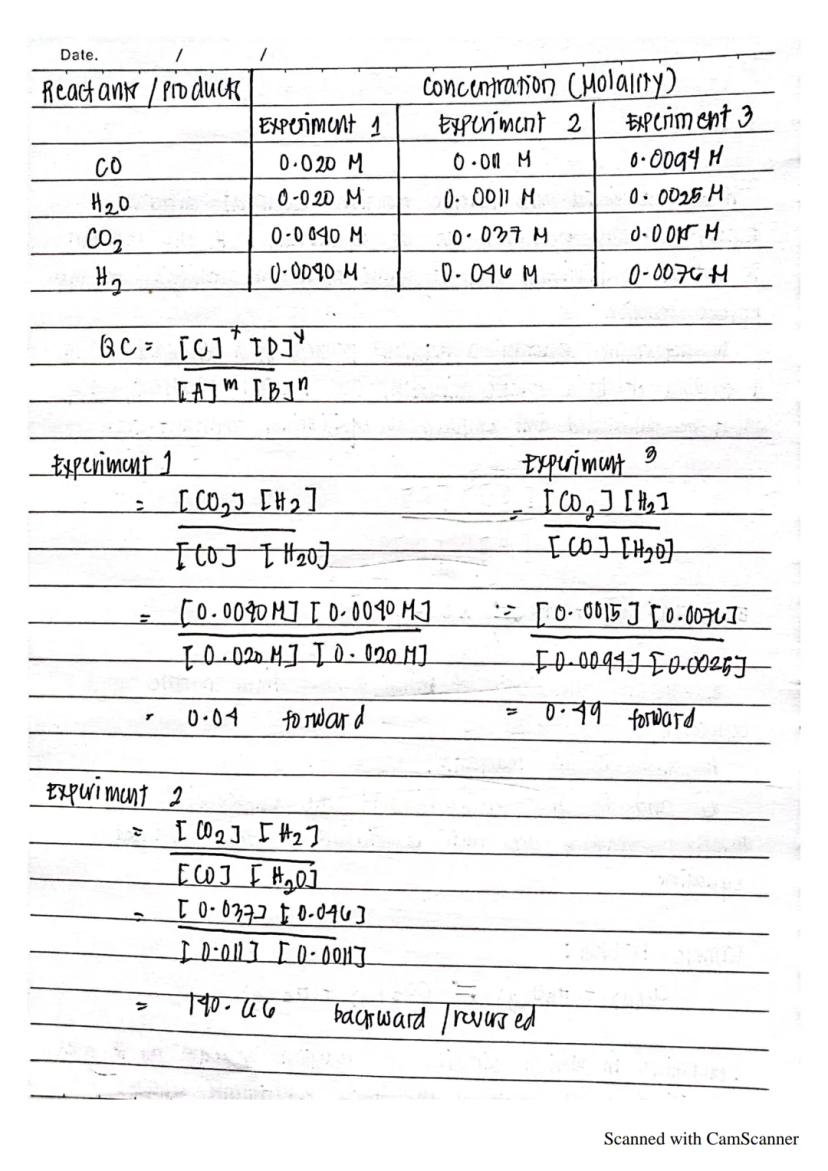 Date. / /
Reactants / Products Concentration (Molality)
Experiment 1 Experiment 2 Experiment 3
CO 0.020 M 0.011 M 0.0094 M
H2O 0.020 M 0.0011 M 0.0025 M
CO2 0.0040 M 0.037 M 0.0015 M
H2 0.0040 M 0.046 M 0.0076 M
QC = [C]^x [D]^y
[A]^m [B]^n
Experiment 1
= [CO2] [H2]
[CO] [H2O]
= [0.0040 M] [0.0040 M]
[0.020 M] [0.020 M]
= 0.04 forward
Experiment 3
= [CO2] [H2]
[CO] [H2O]
= [0.0015] [0.0076]
[0.0094] [0.0025]
= 0.49 forward
Experiment 2
= [CO2] [H2]
[CO] [H2O]
= [0.037] [0.046]
[0.011] [0.0011]
= 140.66 backward / reversed
Scanned with CamScanner